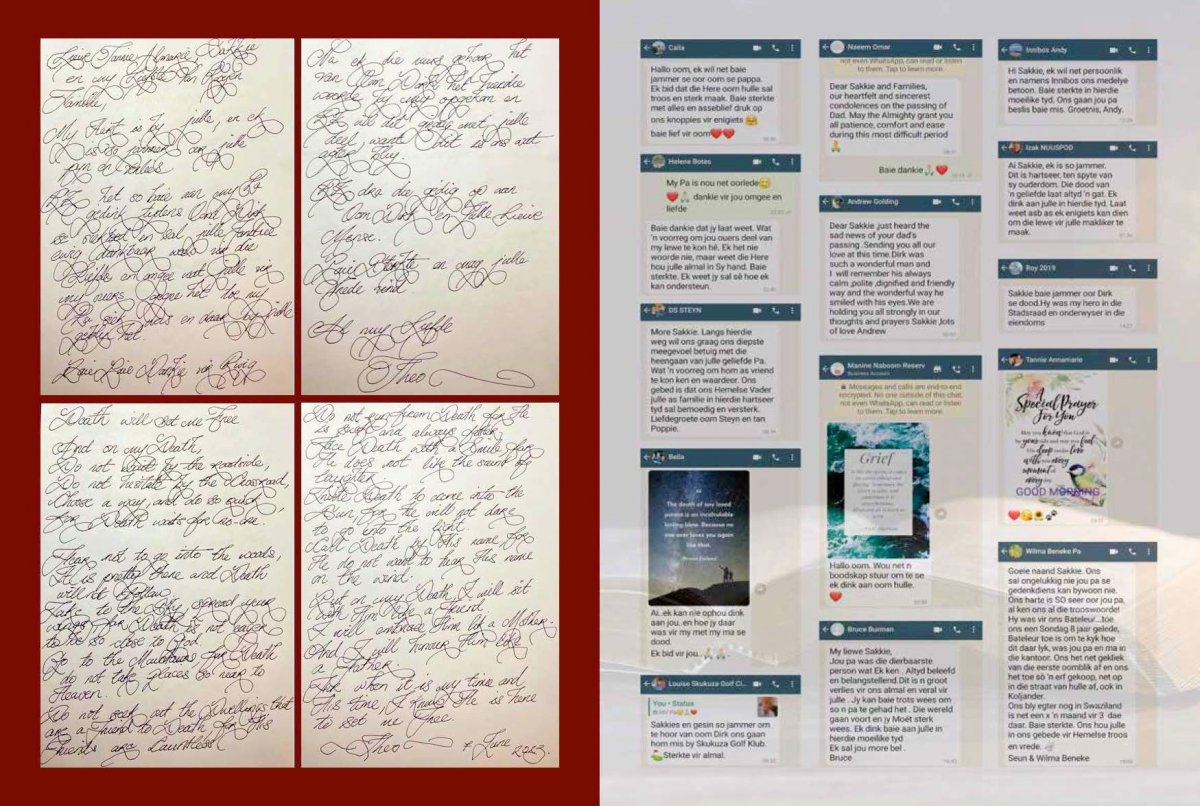 Liewe Tannie Almarie, Sakkie
en my Liefste Van Rooyen
Familie,
My Hart is by julle en ek
is so jammer oor julle
pyn en verlies
Ek het so baie aan my Pa
gedink tydens Oom Dirk
se siekbed en sal julle familie
ewig dankbaar wees vir die
Liefde en omgee wat julle vir
my ouers gegee het toe my
Pa siek was en daar by julle
gebly het
Baie Baie Dankie vir Alles
Na ek die nuus gehoor het
van Oom Dirk het hierdie
woorde by my opgekom en
Ek wil dit graag met julle
deel want dit is ons wat
agter bly.
Ek dra die gedig op aan
Oom Dirk en Julle Liewe
Mense.
Baie Sterkte en mag julle
vrede vind
Al my Liefde
Theo
Death will set me Free
And on my Death,
Do not wait by the roadside,
Do not hesitate by the Crossroad,
Choose a way, and do so quick,
For Death waits for no-one.
Fear not to go into the woods,
He is pretty there and Death
will not Follow
Take to the Sky spread your
wings for Death is not eager
to be so close to God.
Go to the Mountains for Death
do not take places so near to
Heaven.
Do not seek out the Dwellings that
are a friend to Death for His
Friends are Dauntless
Do not run from Death for He
is swift and always faster,
Face Death with a Smile for
He does not like the sound of
laughter.
Invite Death to come into the
Sun, for He will not dare
to go into the Light.
Call Death by His name for
He do not want to hear His name
on the wind.
But on my Death, I will sit
with Him like a Friend
I will embrace Him like a Mother
And I will honour Him like
a Father.
For when it is my time and
His time, I know He is here
to set me Free.
Theo 7 June 2023
Calla
Hallo oom, ek wil net baie
jammer se oor oom se pappa.
Ek bid dat die Here oom hulle sal
troos en sterk maak. Baie sterkte
met alles en asseblief druk op
ons knoppies vir enigiets 🤗
baie lief vir oom❤❤
Helene Botes
My Pa is nou net oorlede😔
❤🙏🏻 dankie vir jou omgee en
liefde
Baie dankie dat jy laat weet. Wat
'n voorreg om jou ouers deel van
my lewe te kon hê. Ek het nie
woorde nie, maar weet die Here
hou julle almal in Sy hand. Baie
sterkte. Ek weet jy sal sê hoe ek
kan ondersteun.
DS STEYN
More Sakkie. Langs hierdie
weg wil ons graag ons diepste
meegevoel betuig met die
heengaan van julle geliefde Pa.
Wat 'n voorreg om hom as vriend
te kon ken en waardeer. Ons
gebed is dat ons Hemelse Vader
julle as familie in hierdie hartseer
tyd sal bemoedig en versterk.
Liefdegroete oom Steyn en tan
Poppie.
Bella
The death of any loved
parent is an incalculable
lasting blow. Because no
one ever loves you again
like that.
Ai..ek kan nie ophou dink
aan jou..en hoe jy daar
was vir my met my ma se
dood.
Ek bid vir jou..🙏🏻🙏🏻 .
Louise Skukuza Golf Cl...
You • Status
Sakkies en gesin so jammer om
te hoor van oom Dirk ons gaan
hom mis by Skukuza Golf Klub.
⛳Sterkte vir almal.
Naeem Omar
not even WhatsApp, can read or listen
to them. Tap to learn more.
Dear Sakkie and Families,
our heartfelt and sincerest
condolences on the passing of
Dad. May the Almighty grant you
all patience, comfort and ease
during this most difficult period
🙏
Baie dankie🙏🏻❤
Andrew Golding
Dear Sakkie ,just heard the
sad news of your dad's
passing .Sending you all our
love at this time.Dirk was
such a wonderful man and
I will remember his always
calm ,polite ,dignified and friendly
way and the wonderful way he
smiled with his eyes.We are
holding you all strongly in our
thoughts and prayers Sakkie ,lots
of love Andrew
Manine Naboom Reserv
Business Account
🔒 Messages and calls are end-to-end
encrypted. No one outside of this chat,
not even WhatsApp, can read or listen
to them. Tap to learn more.
Grief
Hallo oom. Wou net n
boodskap stuur om te se
ek dink aan oom hulle.
❤
Bruce Burman
My liewe Sakkie,
Jou pa was die dierbaarste
person wat Ek ken . Altyd beleefd
en belangstellend.Dit is n groot
verlies vir ons almal en veral vir
julle . Jy kan baie trots wees om
so n pa te gehad het . Die wereld
gaan voort en jy Moët sterk
wees. Ek dink baie aan julle in
hierdie moeilike tyd
Ek sal jou more bel .
Bruce
Innibos Andy
Hi Sakkie, ek wil net persoonlik
en namens Innibos ons medelye
betoon. Baie sterkte in hierdie
moeilike tyd. Ons gaan jou pa
beslis baie mis. Groetnis, Andy.
Izak NUUSPOD
Ai Sakkie, ek is so jammer.
Dit is hartseer, ten spyte van
sy ouderdom. Die dood van
'n geliefde laat altyd 'n gat. Ek
dink aan julle in hierdie tyd. Laat
weet asb as ek enigiets kan dien
om die lewe vir julle makliker te
maak.
Roy 2019
Sakkie baie jammer oor Dirk
se dood.Hy was my hero in die
Stadsraad en onderwyser in die
eiendoms
Tannie Annamarie
A
Special Prayer
For You
May you know that God is
by your side and may you feel
His deep tender love
with you every
moment of
every day
GOOD MORNING
❤😘🌻🐾
Wilma Beneke Pa
Goeie naand Sakkie. Ons
sal ongelukkig nie jou pa se
gedenkdiens kan bywoon nie.
Ons harte is SO seer oor jou pa,
al ken ons al die trooswoorde!
Hy was vir ons Bateleur...toe
ons een Sondag 8 jaar gelede,
Bateleur toe is om te kyk hoe
dit daar lyk, was jou pa en ma in
die kantoor. Ons het net gekliek
van die eerste oomblik af en ons
het toe só 'n erf gekoop, net op
in die straat van hulle af, ook in
Koljander.
Ons bly egter nog in Swaziland
is net een x 'n maand vir 3 dae
daar. Baie sterkte. Ons hou julle
in ons gebede vir Hemelse troos
en vrede. 🕊
Seun & Wilma Beneke